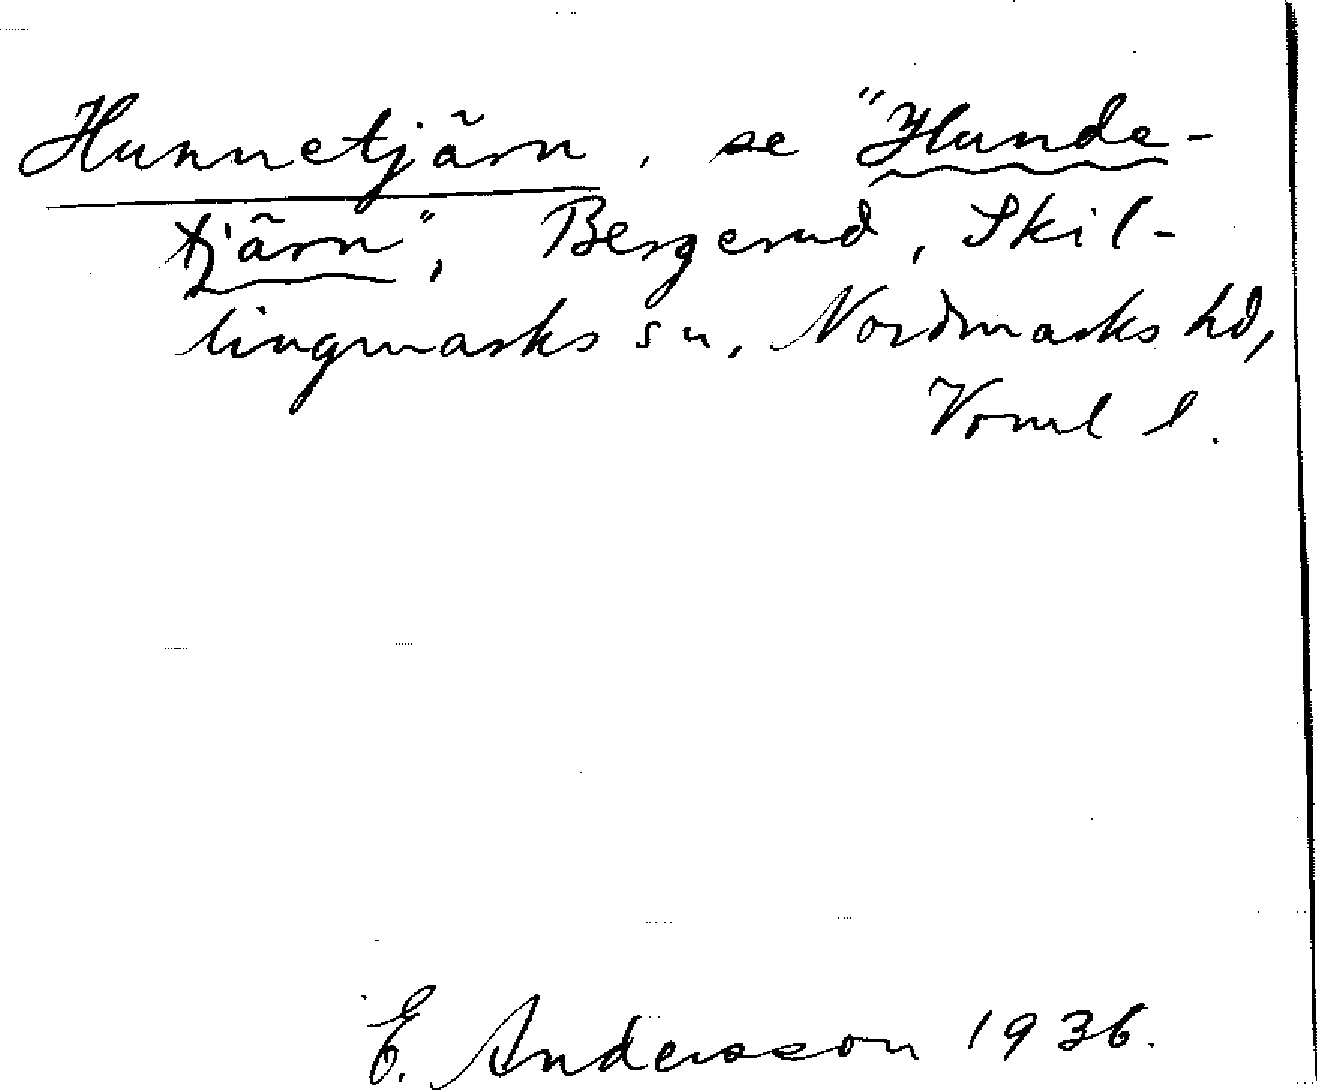 Hunnetjärn, se "Hunde-
tjärn", Bergerud, Skil-
lingmarks sn, Nordmarks hd,
Vrml l.
E. Andersson 1936.